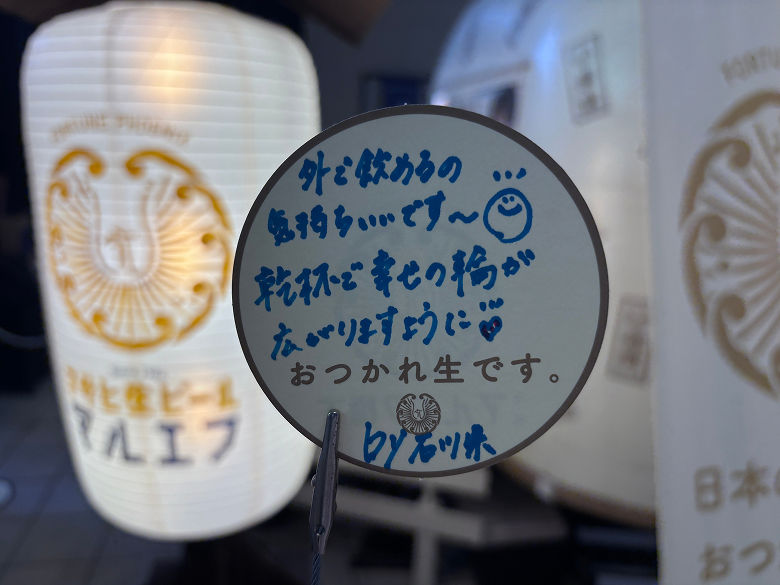 外で飲めるの
気持ちいいです〜
乾杯で幸せの輪が
広がりますように
おつかれ生です。
by石川
アサヒ生ビール
マルエフ
FORTUNE PHOENIX
FORTUN
日本の
おつ